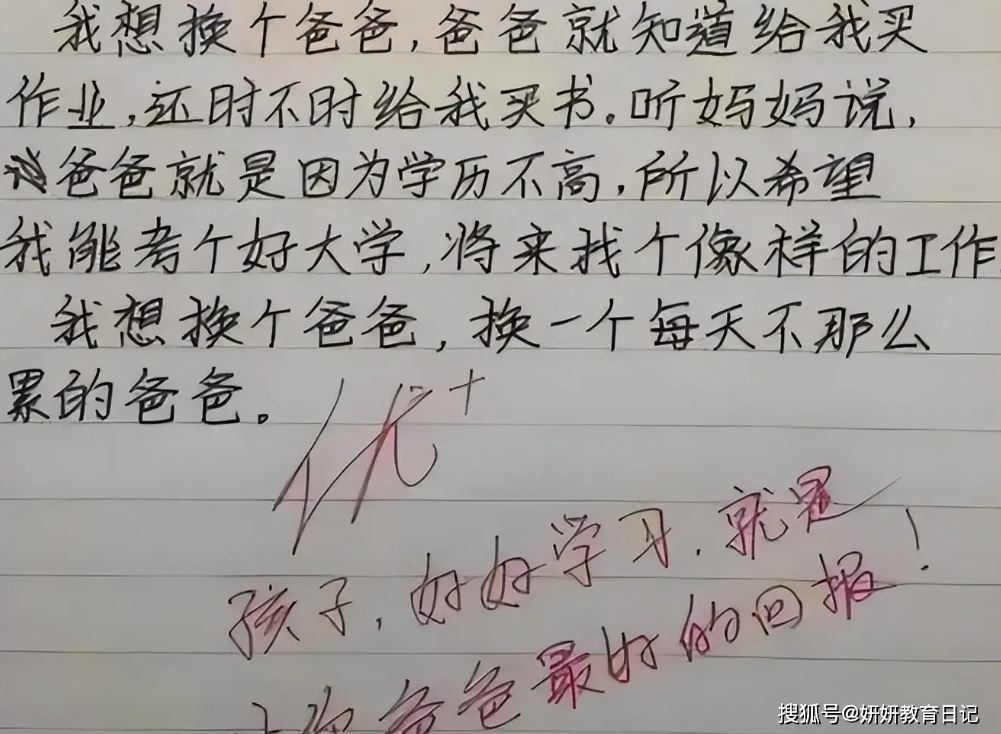 我想换个爸爸，爸爸就知道给我买
作业，还时不时给我买书。听妈妈说，
爸爸就是因为学历不高，所以希望
我能考个好大学，将来找个像样的工作
我想换个爸爸，换一个每天不那么
累的爸爸。
优+
孩子，好好学习，就是
你爸爸最好的回报！
搜狐号@妍妍教育日记